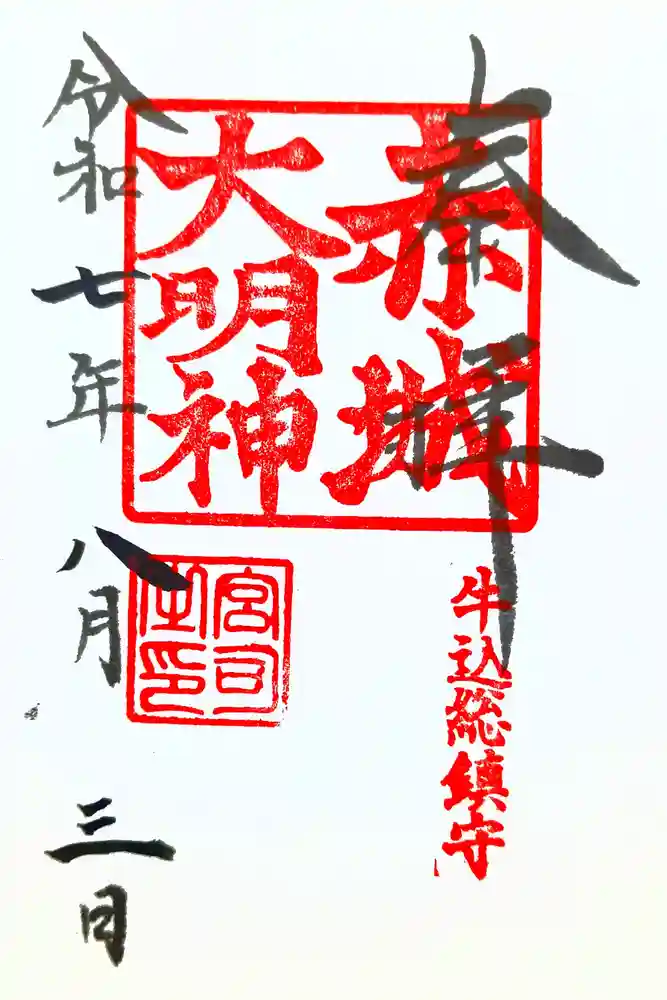 奉拝
赤城
大明神
牛込総鎮守
宮司
之印
令和七年八月三日